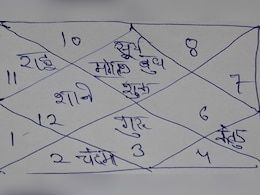 10 सूर्य 8
राहु मंगल बुध
11 शुक्र 7
शनि
12 गुरु 6
1 केतु
2 चंद्रमा 3 4